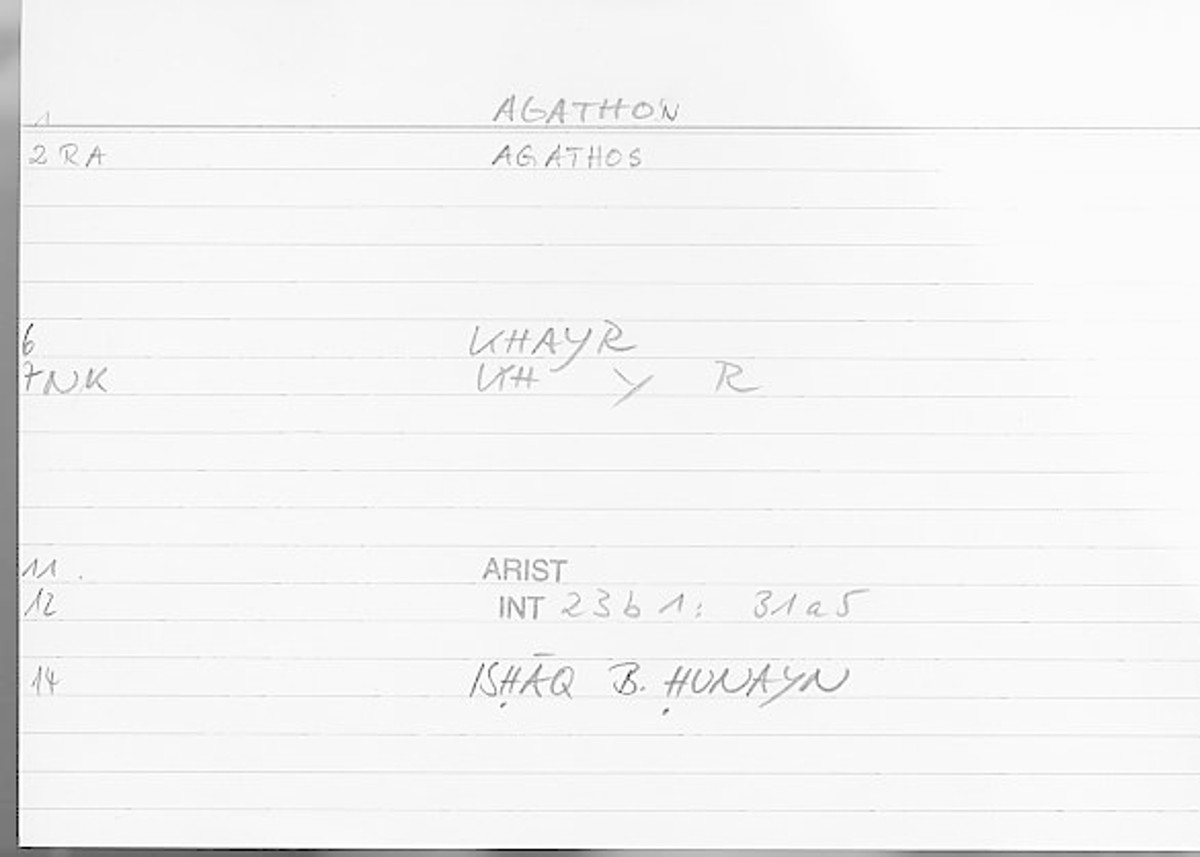 1 AGATHON
2 RA AGATHOS
6 KHAYR
7 NK KH Y R
11 . ARIST
12 INT 23b1: 31a5
14 ISḤĀQ B. ḤUNAYN